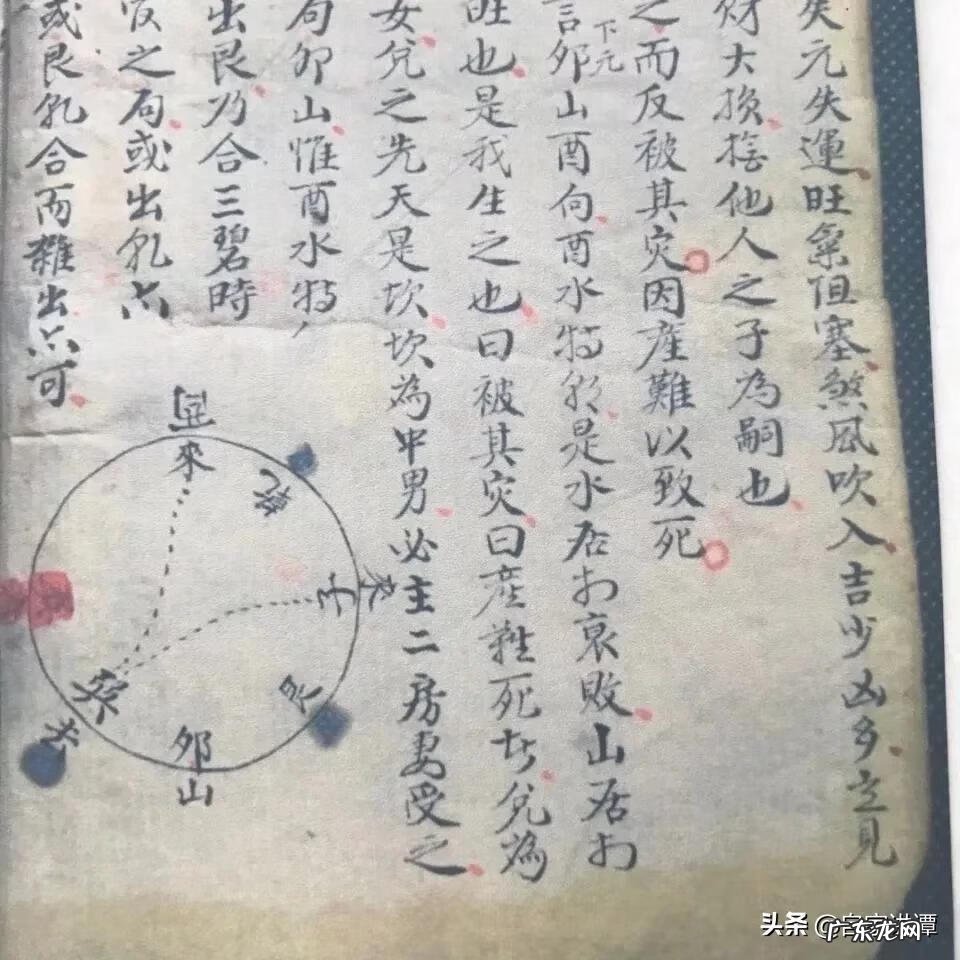 失元失運旺氣阻塞煞風吹入吉少凶多立見
財大損捨他人之子為嗣也
之而反被其灾因産難以致死
下元
言卯山酉向酉水特朝是水居衰敗山居
旺也是我生之也曰被其灾曰産难死者兌為
女兌之先天是坎坎為中男必主二房妻受之
局卯山惟酉水特
出艮乃合三碧時
之局或出乾六
或艮乾合而雜出六可
來
乾
子
來
艮
巽
去
卯山
头条
广东龙网